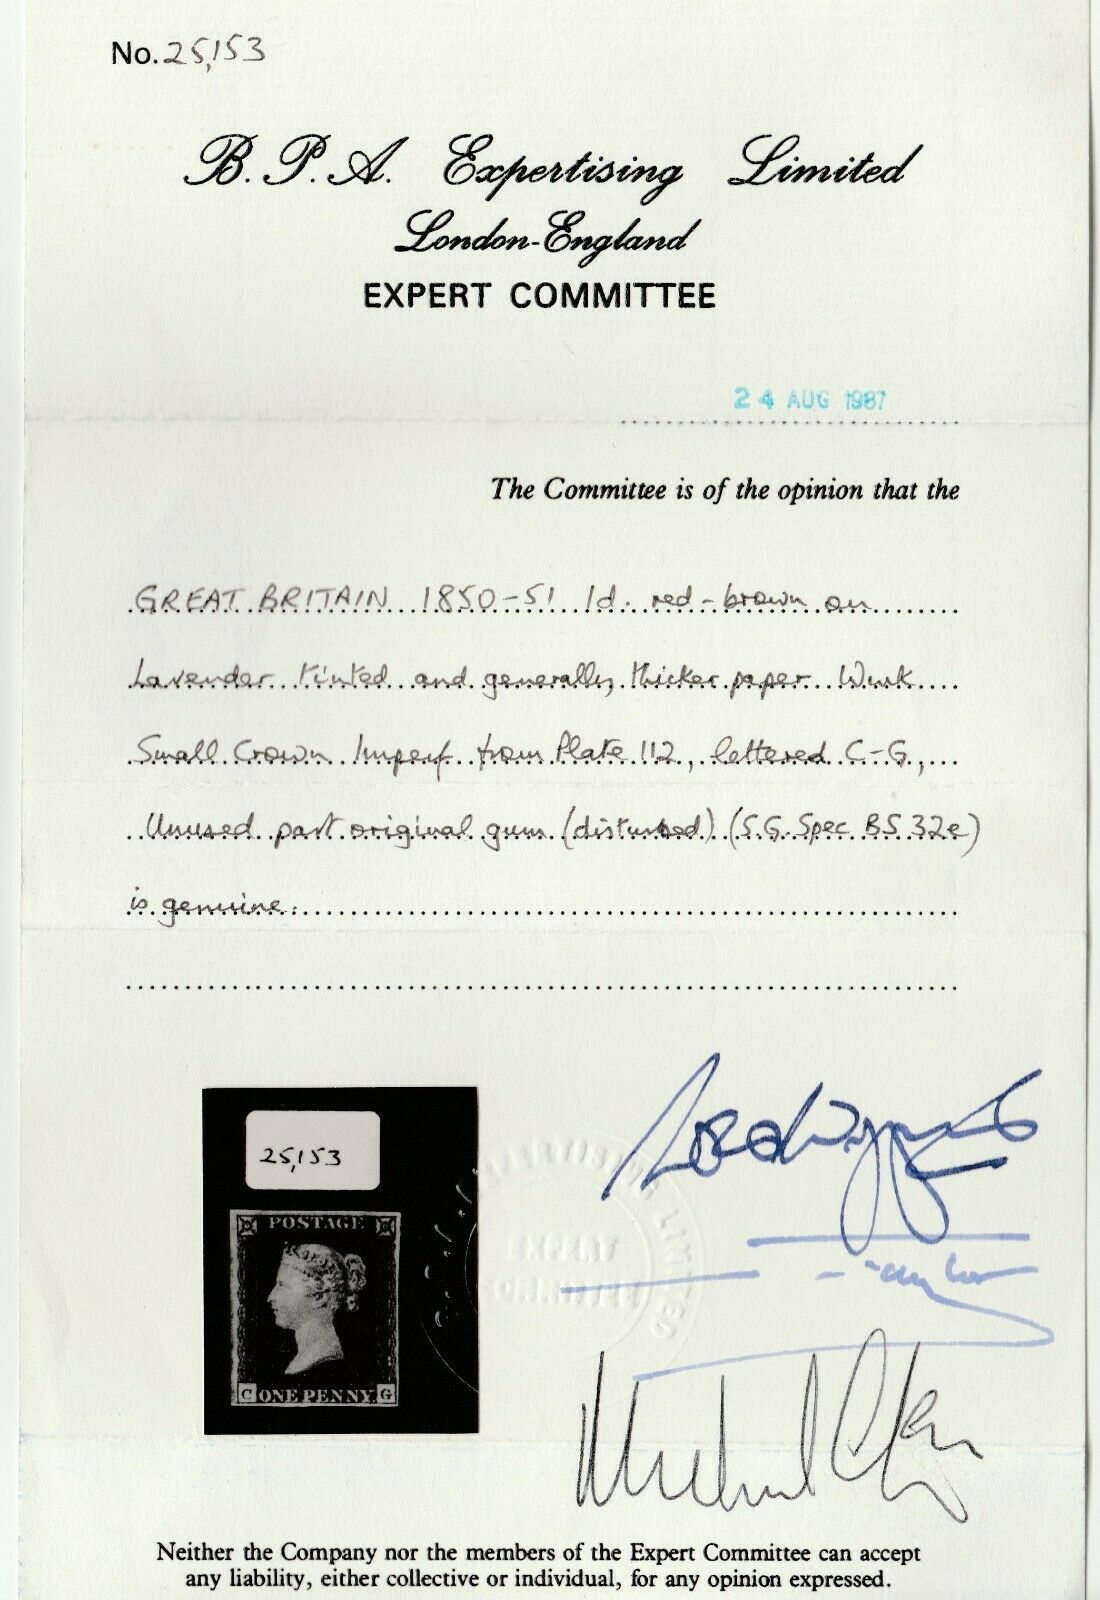 No. 25,153
B. P. A. Expertising Limited
London-England
EXPERT COMMITTEE
24 AUG 1987
The Committee is of the opinion that the
GREAT BRITAIN 1850-51 1d. red-brown on
Lavender tinted and generally thicker paper Wmk
Small Crown Imperf from Plate 112, lettered C-G,
Unused part original gum (disturbed) (S.G. Spec BS 32e)
is genuine.
25,153
POSTAGE
C ONE PENNY. G
EXPERTISING LIMITED
EXPERT
COMMITTEE
Neither the Company nor the members of the Expert Committee can accept
any liability, either collective or individual, for any opinion expressed.